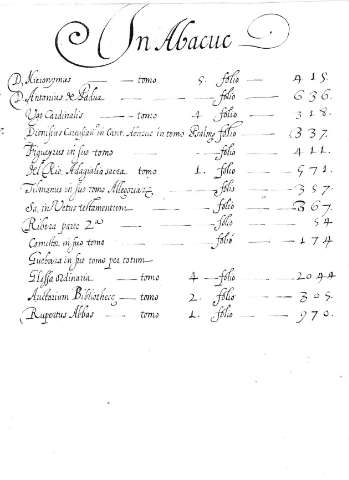 In Abacuc
D. Hieronymus — tomo 5. folio — 415.
D. Antonius de Padua — folio — 636.
Vgo Cardinalis — tomo 4. folio — 318.
Dionisius in Cant. Abacuc in tomo Psalmo folio — 337.
in suo tomo — folio — 411.
Del Rio Adagialia sacra tomo 1. folio — 571.
Tilmanus in suo tomo Allegoriar. — folio — 357
Sa, in Vetus testamentum — folio — 367.
Ribera parte 2ª — folio — 54
in suo tomo — folio — 174
Guevara in suo tomo per totum —
Glossa ordinaria — tomo 4 — folio — 2044
Auctorium Bibliothece — tomo 2. folio — 305.
Rupertus Abbas — tomo 1. folio — 970.